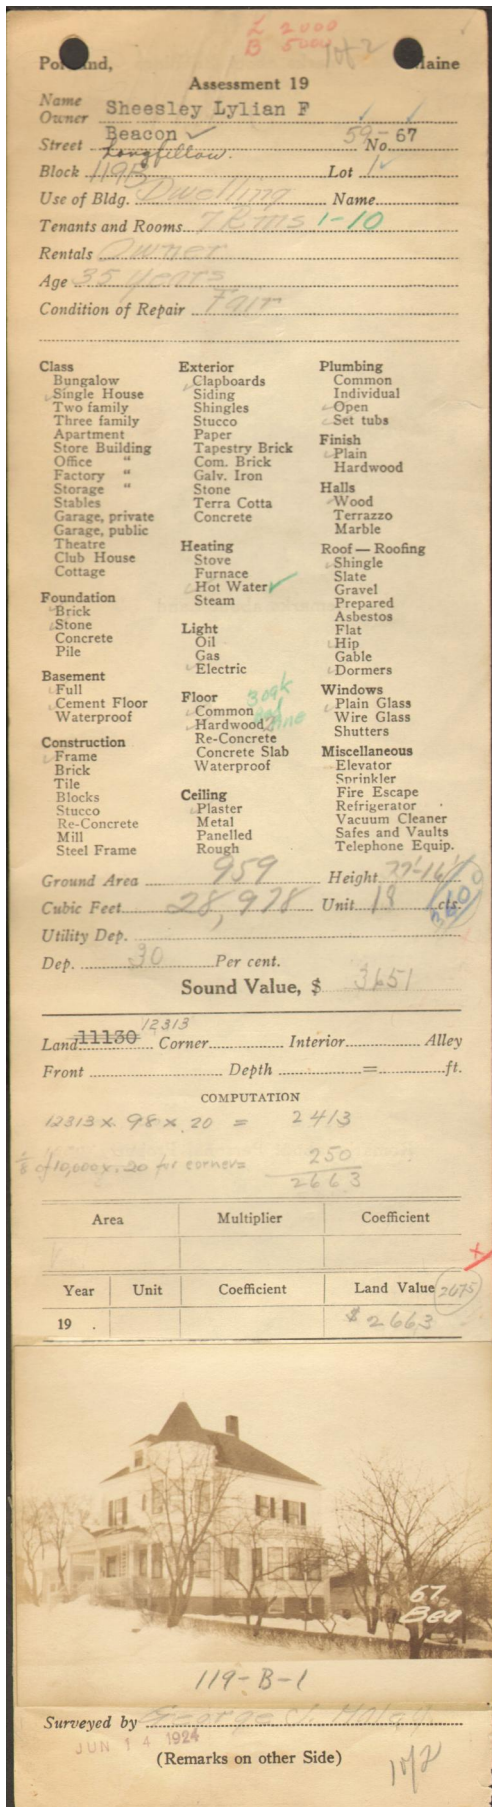 L 2000
B 5000 1 of 2
Portland, Maine
Assessment 19
Name
Owner Sheesley Lylian F
Beacon
Street Longfellow. No. 59-67
Block 119B Lot 1
Use of Bldg. Dwelling Name
Tenants and Rooms 7 Rms 1-10
Rentals Owner
Age 35 years
Condition of Repair Fair
Class
Bungalow
Single House
Two family
Three family
Apartment
Store Building
Office "
Factory "
Storage "
Stables
Garage, private
Garage, public
Theatre
Club House
Cottage
Foundation
Brick
Stone
Concrete
Pile
Basement
Full
Cement Floor
Waterproof
Construction
Frame
Brick
Tile
Blocks
Stucco
Re-Concrete
Mill
Steel Frame
Exterior
Clapboards
Siding
Shingles
Stucco
Paper
Tapestry Brick
Com. Brick
Galv. Iron
Stone
Terra Cotta
Concrete
Heating
Stove
Furnace
Hot Water
Steam
Light
Oil
Gas
Electric
Floor 3 oak
Common
Hardwood 2
Re-Concrete
Concrete Slab
Waterproof
Ceiling
Plaster
Metal
Panelled
Rough
Plumbing
Common
Individual
Open
Set tubs
Finish
Plain
Hardwood
Halls
Wood
Terrazzo
Marble
Roof — Roofing
Shingle
Slate
Gravel
Prepared
Asbestos
Flat
Hip
Gable
Dormers
Windows
Plain Glass
Wire Glass
Shutters
Miscellaneous
Elevator
Sprinkler
Fire Escape
Refrigerator
Vacuum Cleaner
Safes and Vaults
Telephone Equip.
Ground Area 959 Height
Cubic Feet 28,978 Unit 18 cts.
Utility Dep.
Dep. 30 Per cent.
Sound Value, $ 3651
12313
Land 11130 Corner Interior Alley
Front Depth = ft.
COMPUTATION
12313 x .98 x .20 = 2413
1/8 of 10,000 x .20 for corner = 250
2663
Area Multiplier Coefficient
Year Unit Coefficient Land Value 2675
19 . $ 2663
67
Bea
119-B-1
Surveyed by George J. Haley
JUN 14 1924
(Remarks on other Side)
1 of 2